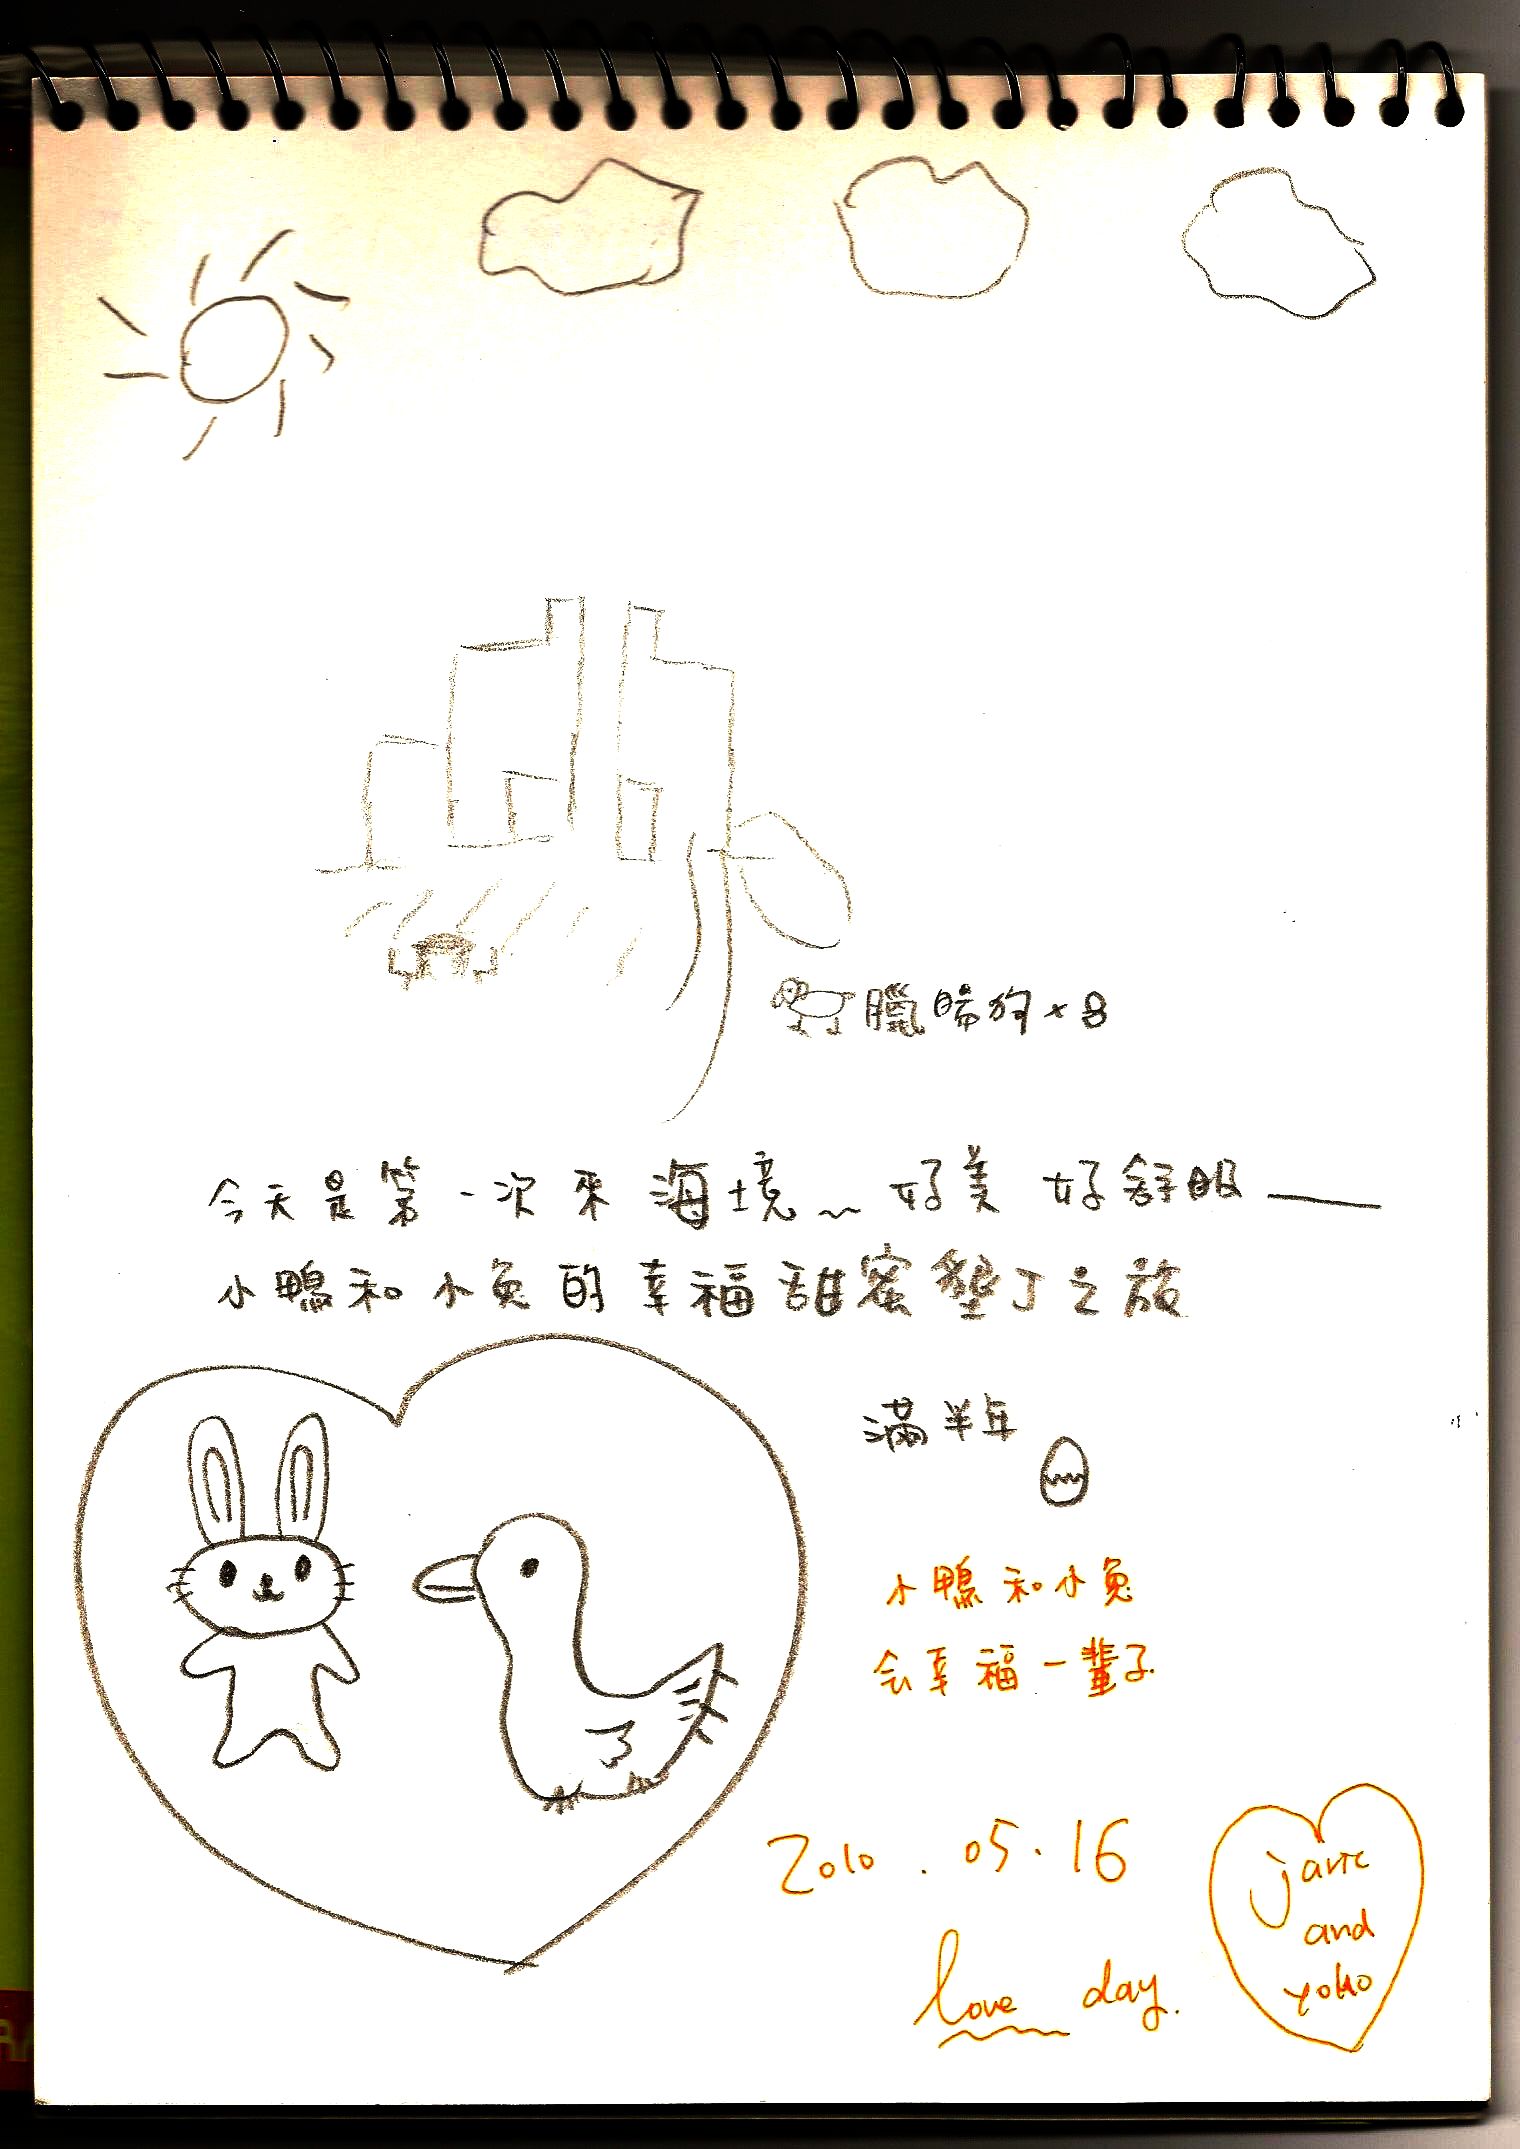 臘腸狗×8
今天是第一次來海境~~好美 好舒服——
小鴨和小兔的幸福甜蜜墾丁之旅
滿半年
小鴨和小兔
会幸福一輩子
2010.05.16
love day.
and
yoko